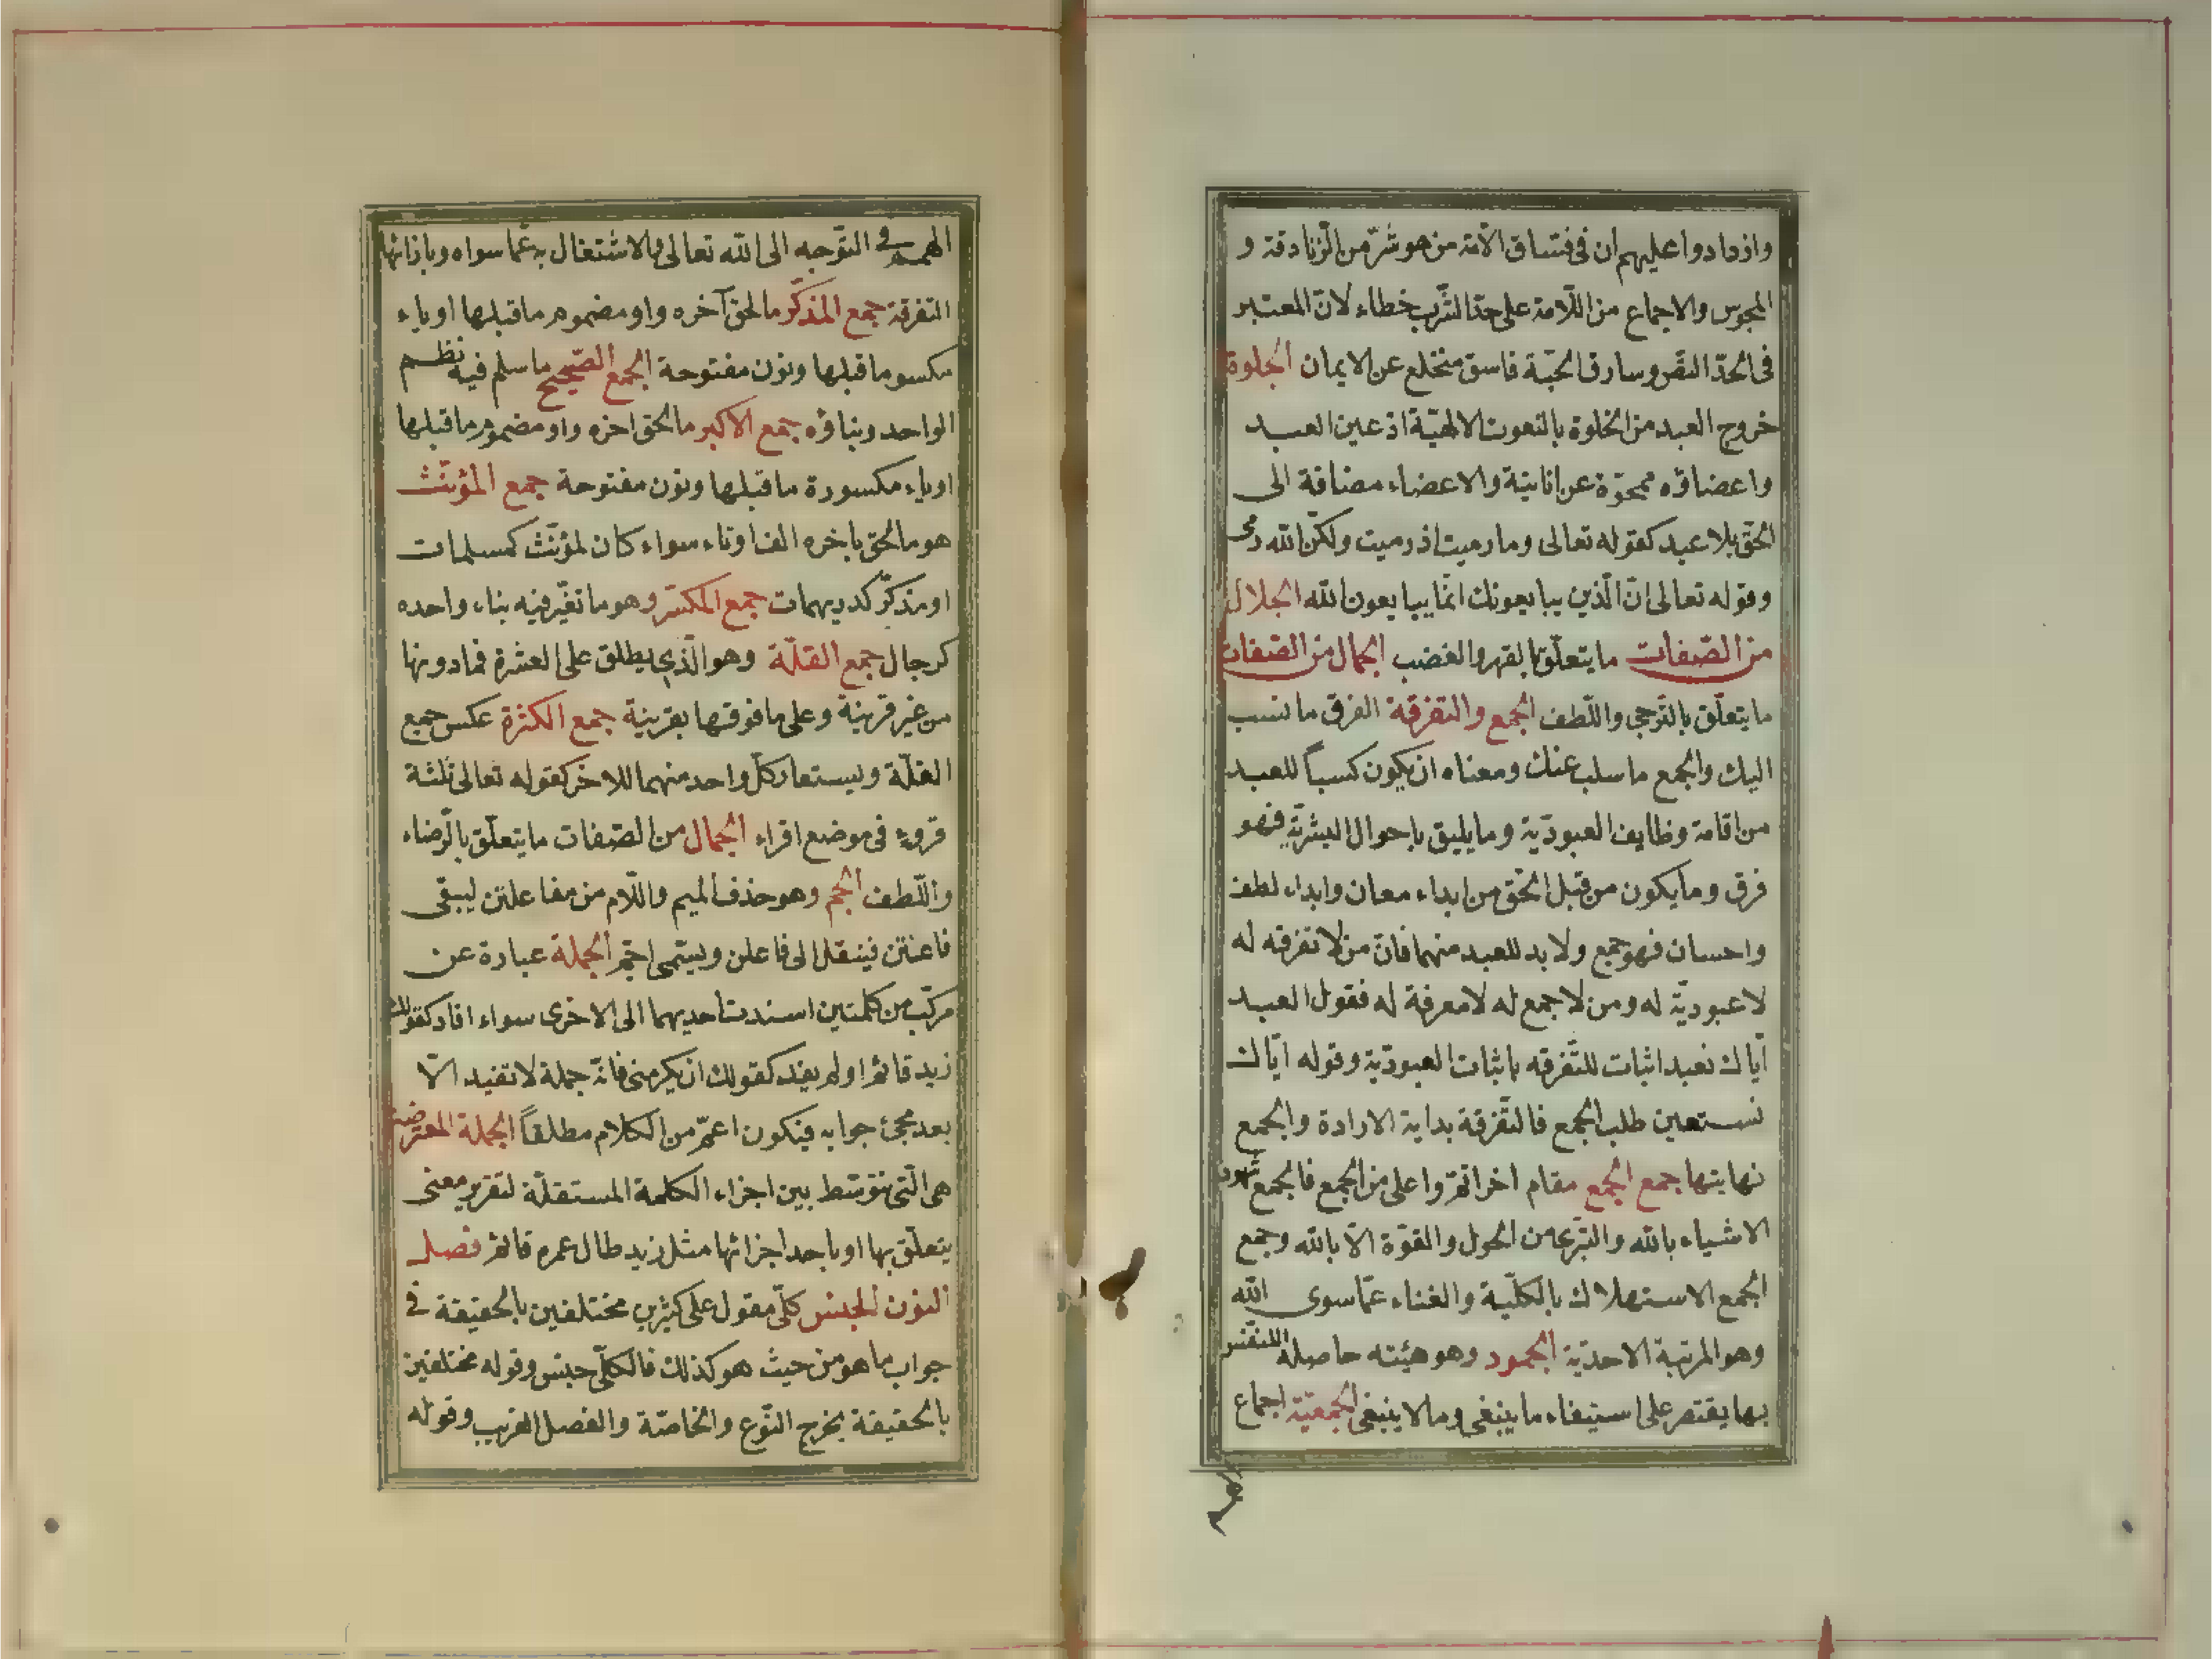 وازدادوا عليهم ان في فساق الامة من هو شرّ من الزنادقة و
المجوس والاجماع من اللامة على حدّ الشّرب خطاء لانّ المعتبر
فى الحدّ النصّ وسارق الحبّة فاسق منخلع عن الايمان الجلوة
خروج العبد من الخلوة بالنعوت الالهيّة اذ عين العبد
واعضاؤه ممحوّة عن انانيّة والاعضاء مضافة الى
الحقّ بلا عبد كقوله تعالى وما رميت اذ رميت ولكنّ الله رمى
وقوله تعالى انّ الّذين يبايعونك انّما يبايعون الله الجلال
من الصّفات ما يتعلّق بالقهر والغضب الجمال من الصّفات
ما يتعلّق بالترجى واللّطف الجمع والتفرقة الفرق ما نسب
اليك والجمع ما سلب عنك ومعناه ان يكون كسباً للعبد
من اقامة وظايف العبوديّة وما يليق باحوال البشريّة فهو
فرق وما يكون من قبل الحقّ من ابداء معان وابداء لطف
واحسان فهو جمع ولا بد للعبد منهما فانّ من لا تفرقه له
لا عبوديّة له ومن لا جمع له لا معرفة له فقول العبد
ايّاك نعبد اثبات للتّفرقه باثبات العبوديّة وقوله ايّاك
نستعين طلب الجمع فالتّفرقة بداية الارادة والجمع
نهايتها جمع الجمع مقام اخر اتمّ واعلى من الجمع فالجمع شهود
الاشياء بالله والتبرّى من الحول والقوّة الّا بالله وجمع
الجمع الاستهلاك بالكلّية والفناء عمّا سوى الله
وهو المرتبة الاحديّة الجمود وهو هيئته حاصله للنفس
بها يقتصر على استيفاء ما ينبغى وما لا ينبغى الجمعيّة اجماع
الهمم فى التوّجه الى الله تعالى والاشتغال به عمّا سواه وبازائها
التفرقة جمع المذكّر ما لحق آخره واو مضموم ما قبلها او ياء
مكسور ما قبلها ونون مفتوحة الجمع الصّحيح ما سلم فيه نظم
الواحد وبناؤه جمع الاكبر ما لحق اخره واو مضموم ما قبلها
او ياء مكسورة ما قبلها ونون مفتوحة جمع المؤنّث
هو ما لحق باخره الف او تاء سواء كان لمؤنّث كمسلمات
او مذكّر كدريهمات جمع المكسّر وهو ما تغيّر فيه بناء واحده
كرجال جمع القلّة وهو الّذي يطلق على العشرة فما دونها
من غير قرينة وعلى ما فوقها بقرينة جمع الكثرة عكس جمع
القلّة ويستعار كلّ واحد منهما للاخر كقوله تعالى ثلثة
قروء فى موضع اقراء الجمال من الصّفات ما يتعلّق بالرّضاء
واللّطف الجم وهو حذف الميم واللّام من مفاعلتن ليبقى
فاعتن فينقل الى فاعلن ويسمّى اجمّ الجملة عبارة عن
مركّب من كلمتين اسندت احديهما الى الاخرى سواء افاد كقولك
زيد قائم او لم يفد كقولك ان يكرمنى فانّه جملة لا تفيد الّا
بعد مجئ جوابه فيكون اعمّ من الكلام مطلقاً الجملة المعترضة
هى الّتى تتوسّط بين اجزاء الكلمة المستقلّة لتقرير معنى
يتعلّق بها او باحد اجزائها مثل زيد طال عمره قائم فصل
النون الجنس كلّى مقول على كثيرين مختلفين بالحقيقة فى
جواب ما هو من حيث هو كذلك فالكلّى جنس وقوله مختلفين
بالحقيقة يخرج النّوع والخاصّة والفصل القريب وقوله